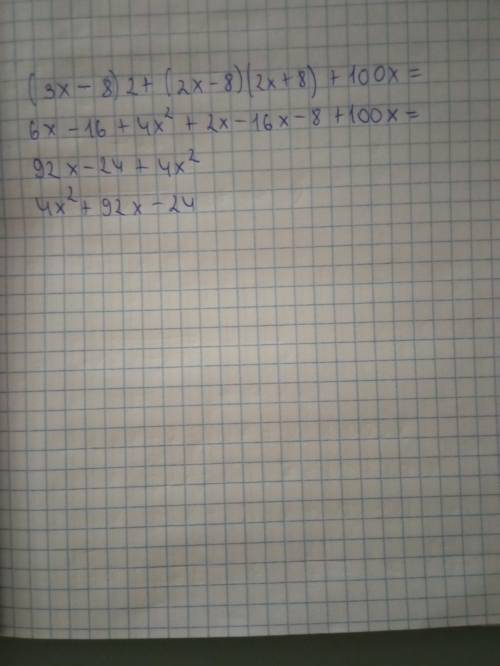 (3x - 8)2 + (2x - 8)(2x + 8) + 100x =
6x - 16 + 4x² + 2x - 16x - 8 + 100x =
92x - 24 + 4x²
4x² + 92x - 24